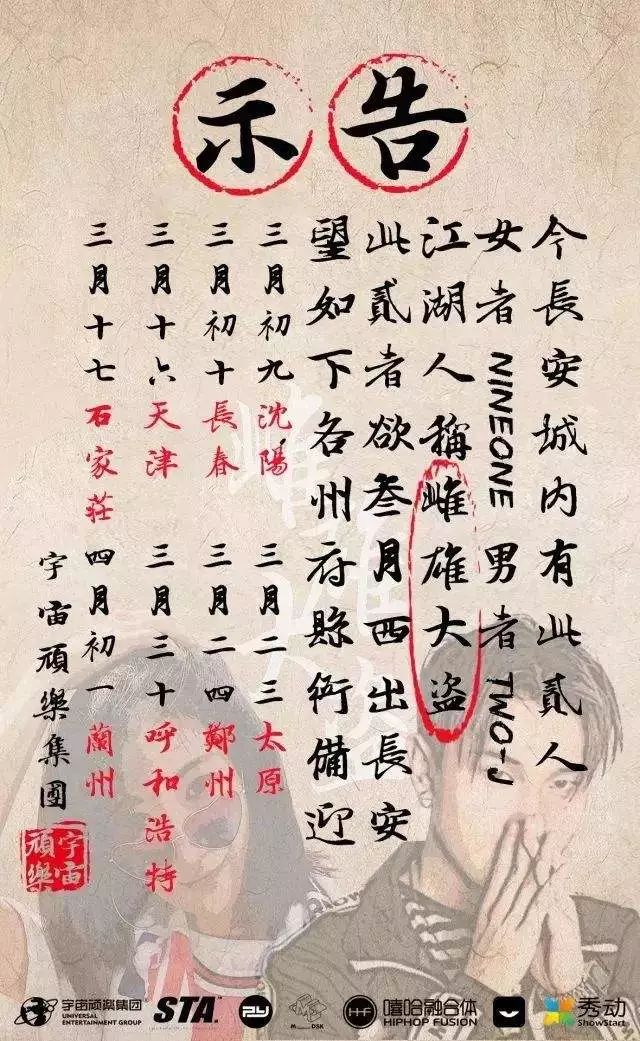 告示
今長安城内有此貳人
女者 NINEONE 男者 TWO-J
江湖人稱雌雄大盜
此貳者欲叁月西出長安
望如下各州府縣衙備迎
三月初九沈陽
三月初十長春
三月十六天津
三月十七石家莊
三月二三太原
三月二四鄭州
三月三十呼和浩特
四月初一蘭州
宇宙頑樂集團
宇宙
頑樂
宇宙頑樂集团
UNIVERSAL
ENTERTAINMENT GROUP
STA.
嘻哈融合体
HIPHOP FUSION
秀动
ShowStart